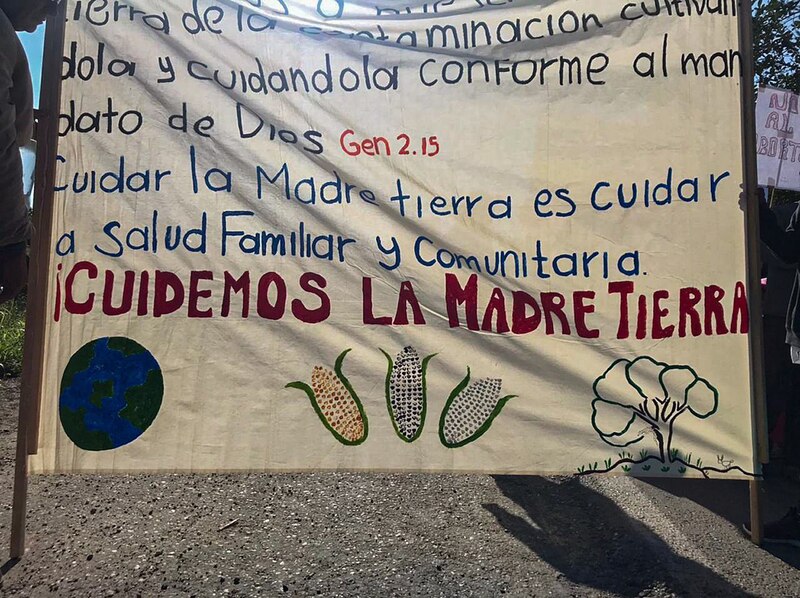 tierra de la contaminación cultivan
dola y cuidandola conforme al man
dato de Dios Gen 2.15
Cuidar la Madre tierra es cuidar
a Salud Familiar y Comunitaria.
¡CUIDEMOS LA MADRE TIERRA
NO
AL
ABORTO